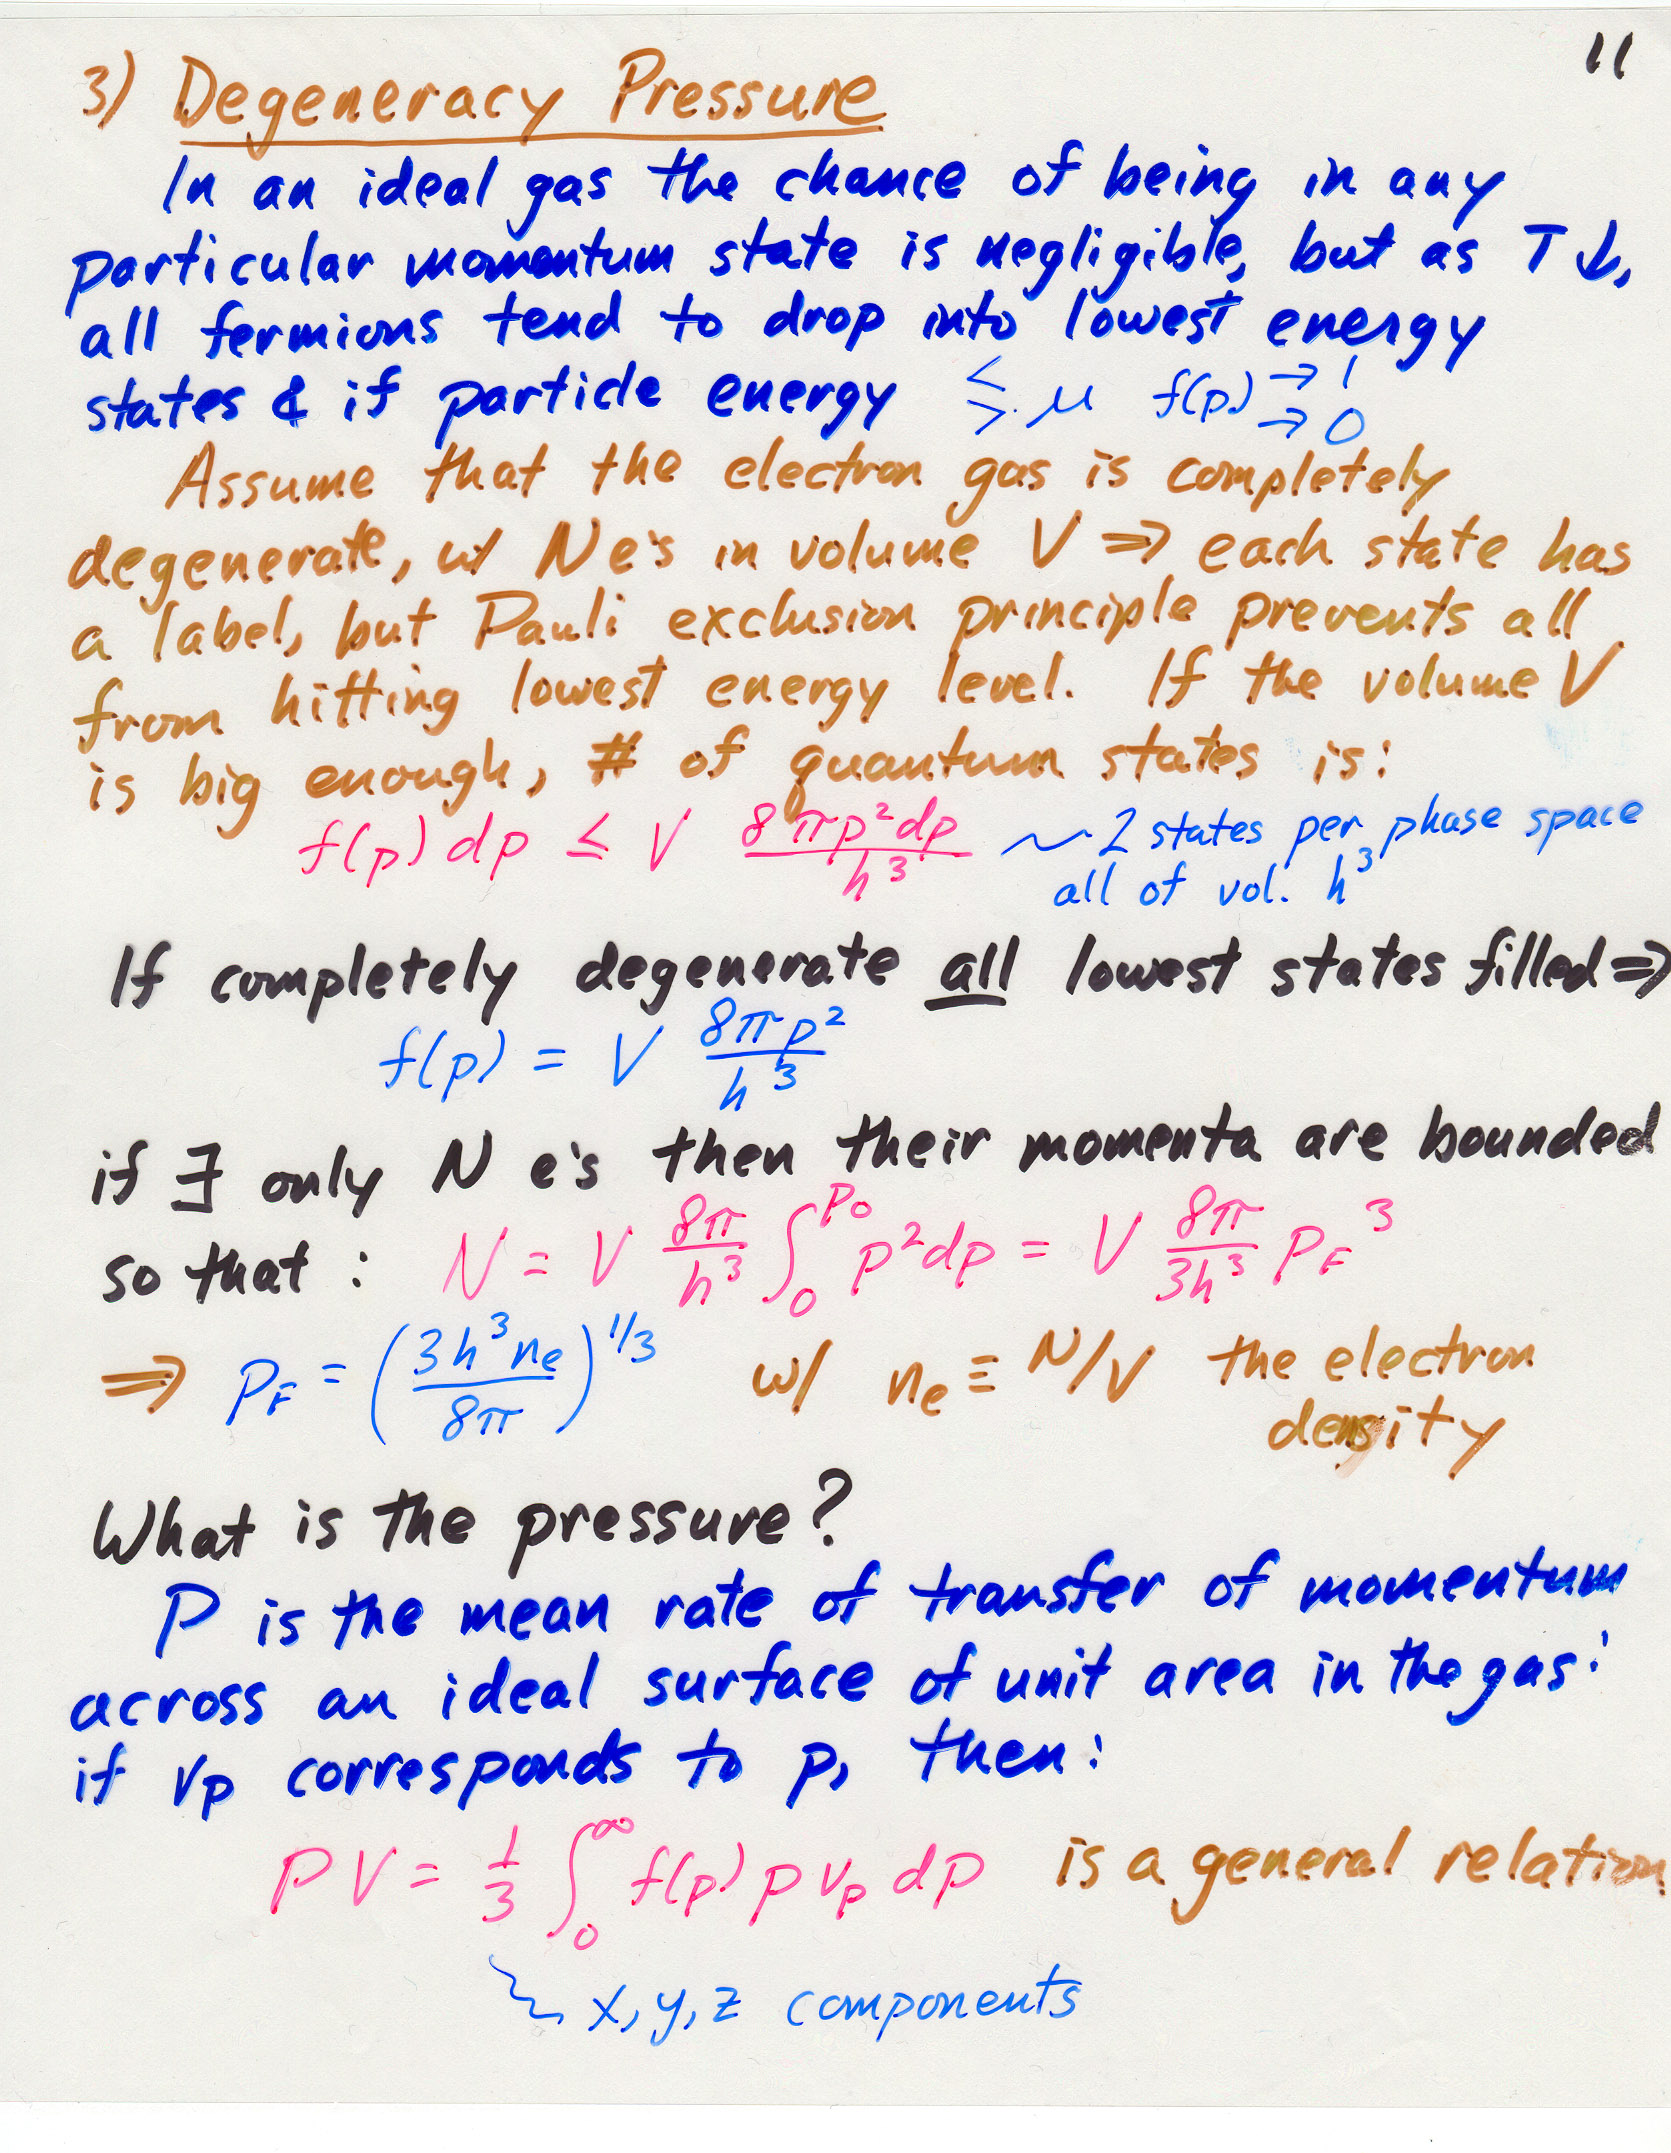 11
3) Degeneracy Pressure
In an ideal gas the chance of being in any
particular momentum state is negligible, but as T ↓,
all fermions tend to drop into lowest energy
states & if particle energy ≤ ≥ μ f(p) → 1 → 0
Assume that the electron gas is completely
degenerate, w/ N e's in volume V ⇒ each state has
a label, but Pauli exclusion principle prevents all
from hitting lowest energy level. If the volume V
is big enough, # of quantum states is:
f(p) dp ≤ V 8πp²dp / h³ ~ 2 states per phase space
all of vol. h³
If completely degenerate all lowest states filled ⇒
f(p) = V 8πp² / h³
if ∃ only N e's then their momenta are bounded
so that : N = V 8π/h³ ∫₀^p₀ p²dp = V 8π/3h³ p_F³
⇒ p_F = (3h³n_e / 8π)^1/3 w/ n_e ≡ N/V the electron
density
What is the pressure?
P is the mean rate of transfer of momentum
across an ideal surface of unit area in the gas:
if v_p corresponds to p, then:
PV = 1/3 ∫₀^∞ f(p) p v_p dp is a general relation
x, y, z components